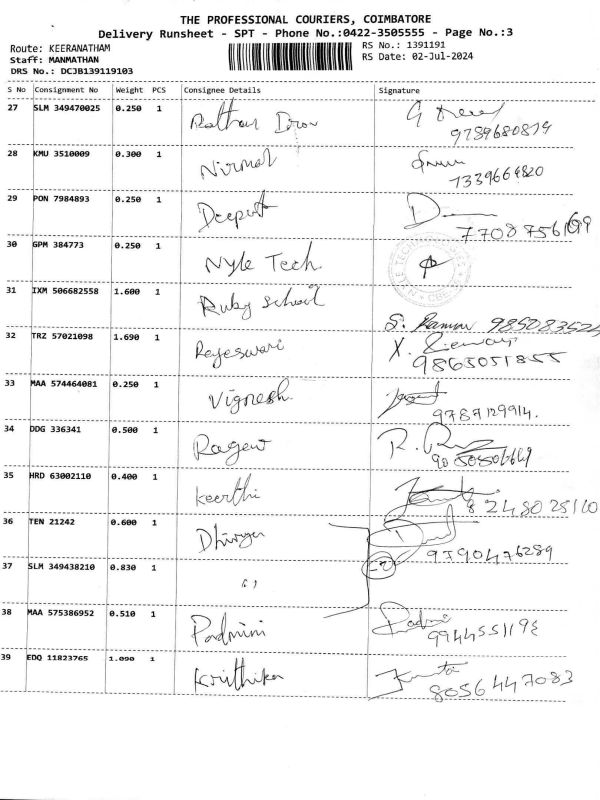 THE PROFESSIONAL COURIERS, COIMBATORE
Delivery Runsheet - SPT - Phone No.:0422-3505555 - Page No.:3
Route: KEERANATHAM RS No.: 1391191
Staff: MANMATHAN RS Date: 02-Jul-2024
DRS No.: DCJB139119103
S No Consignment No Weight PCS Consignee Details Signature
27 SLM 349470025 0.250 1
9789680879
28 KMU 3510009 0.300 1 Nirmal
7339664820
29 PON 7984893 0.250 1 Deepak
30 GPM 384773 0.250 1 Nyle Tech
31 IXM 506682558 1.600 1 Ruby School
S. Raman
32 TRZ 57021098 1.690 1 Reyeswari
9865051855
33 MAA 574464081 0.250 1 Vignesh
9787129914.
34 DDG 336341 0.500 1
35 HRD 63002110 0.400 1 keerthi
36 TEN 21242 0.600 1 Dhivya
9790476289
37 SLM 349438210 0.830 1 "
38 MAA 575386952 0.510 1 Padmini Padmi
39 EDQ 11823765 1.090 1 krithika
8056447083